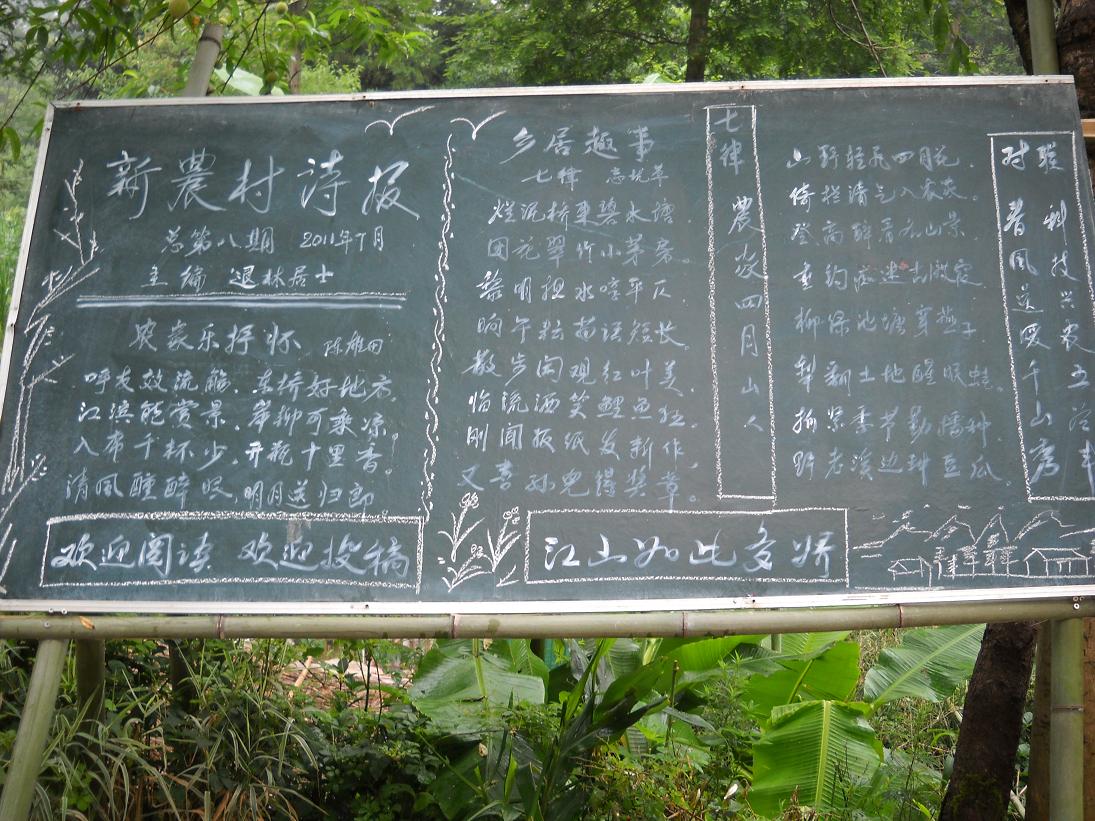 新農村诗报
总第八期 2011年7月
主编 退林居士
农家乐抒怀 陈雄田
呼友效流觞，东桥好地方。
江滨能赏景，岸柳可乘凉。
入席千杯少，开瓶十里香。
清风醺醉眼，明月送归郎
欢迎阅读 欢迎投稿
乡居趣事
七律
烂泥桥东碧水塘，
园花翠竹小茅房。
黎明担水吟平仄，
晌午耘苗话短长，
散步闲观红叶美，
临流洒笑鲤鱼狂。
刚闻报纸发新作，
又喜孙儿得奖章。
江山如此多娇
七律 農家四月 山人
山野轻飞四月花，
倚栏清气入农家。
登高醉看春山景，
柳绿池塘穿燕子
犁翻土地醒眠蛙。
季节勤播种
野老溪边种豆瓜。
对联
科技兴农五谷丰
春风送暖千山秀